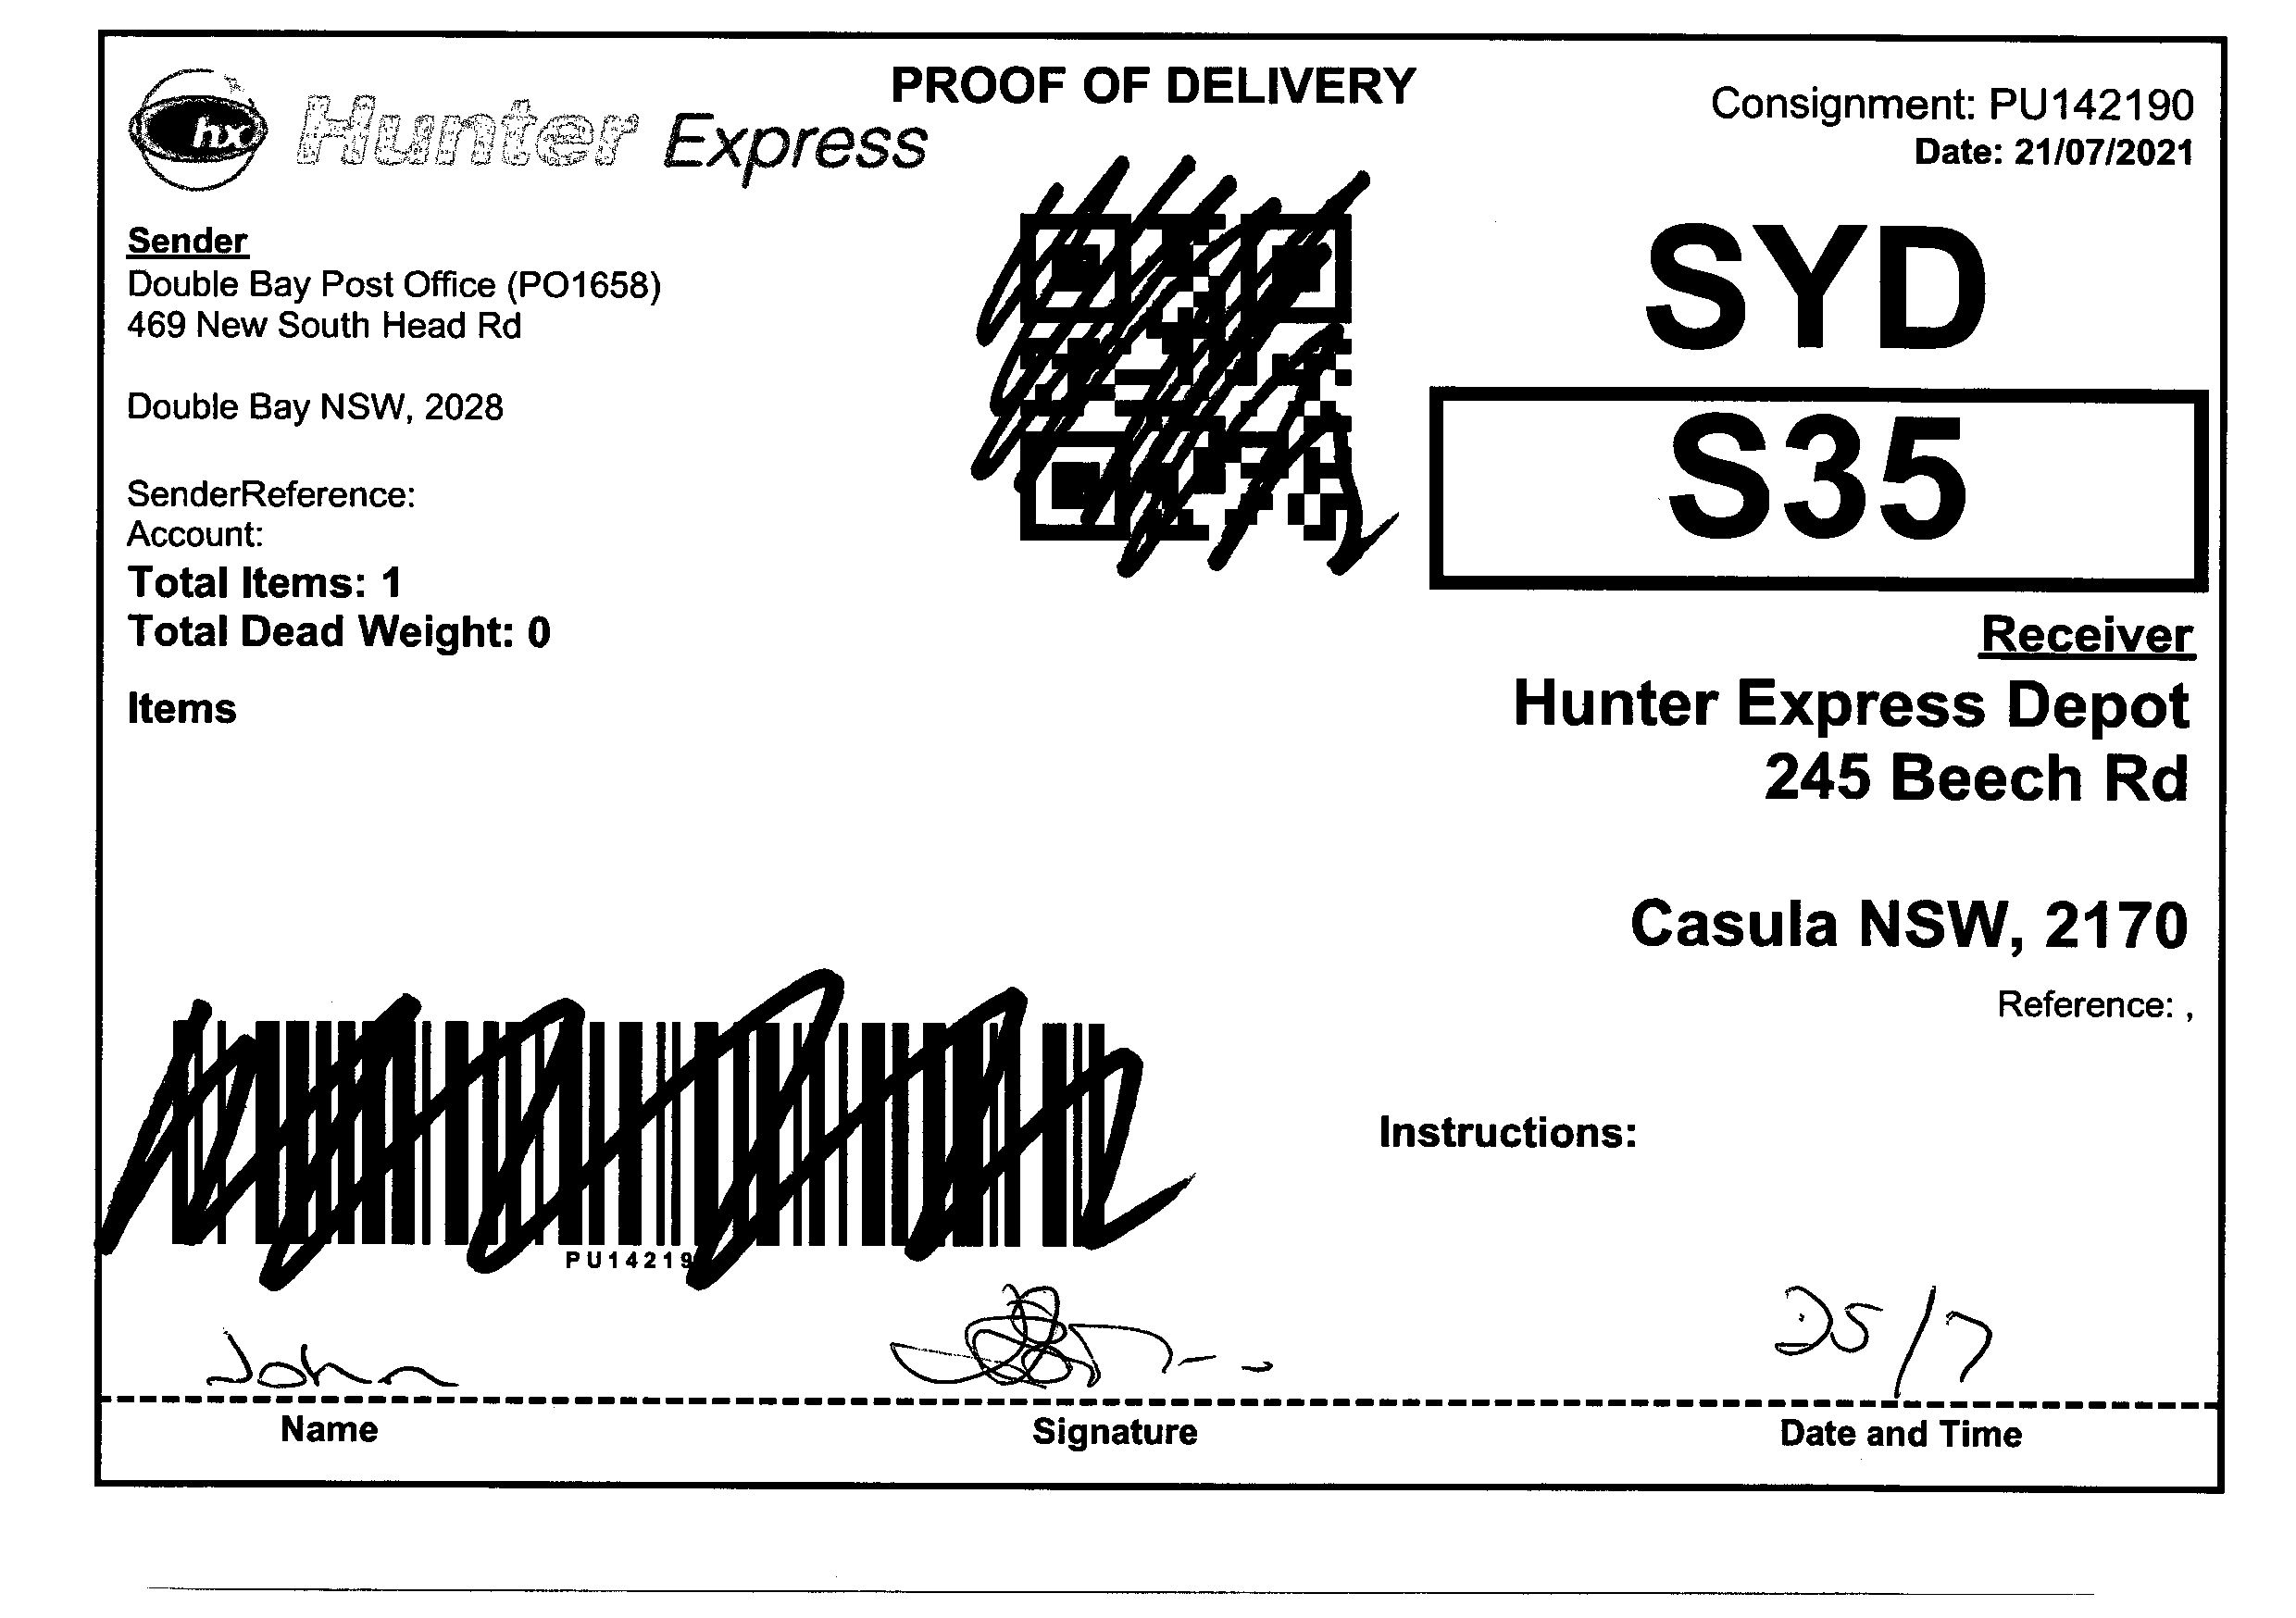 PROOF OF DELIVERY
hx Hunter Express
Consignment: PU142190
Date: 21/07/2021
Sender
Double Bay Post Office (PO1658)
469 New South Head Rd
Double Bay NSW, 2028
SenderReference:
Account:
Total Items: 1
Total Dead Weight: 0
Items
SYD
S35
Receiver
Hunter Express Depot
245 Beech Rd
Casula NSW, 2170
Reference: ,
Instructions:
PU14219
John
25/7
Name Signature Date and Time